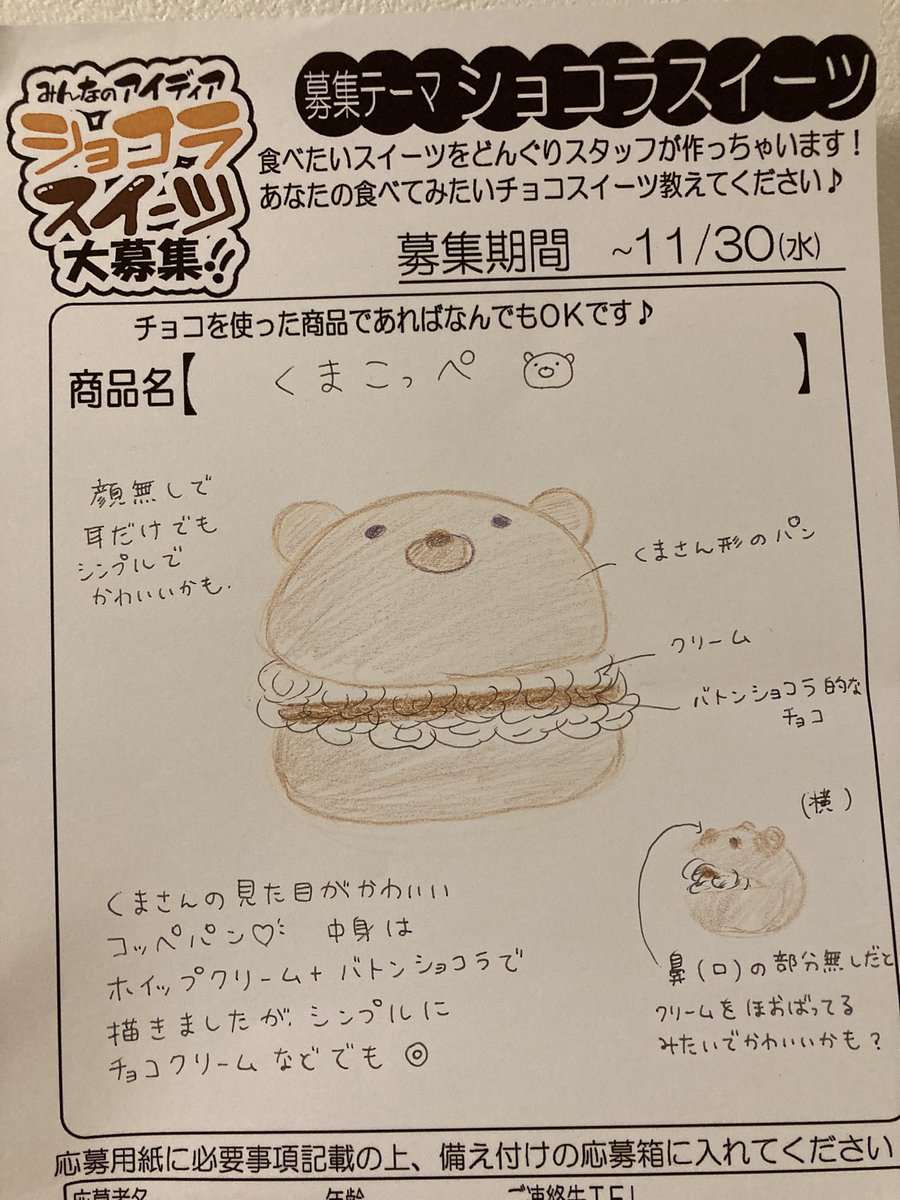 みんなのアイディア
ショコラ
スイーツ
大募集!!
募集テーマ ショコラスイーツ
食べたいスイーツをどんぐりスタッフが作っちゃいます!
あなたの食べてみたいチョコスイーツ教えてください♪
募集期間 ~11/30(水)
チョコを使った商品であればなんでもOKです♪
商品名【 くまこっぺ 】
顔無しで
耳だけでも
シンプルで
かわいいかも.
くまさん形のパン
クリーム
バトンショコラ的な
チョコ
(横)
鼻(口)の部分無しだと
クリームをほおばってる
みたいでかわいいかも?
くまさんの見た目がかわいい
コッペパン♡ 中身は
ホイップクリーム+バトンショコラで
描きましたが、シンプルに
チョコクリームなどでも◎
応募用紙に必要事項記載の上、備え付けの応募箱に入れてください
応募者名 年齢 ご連絡先TEL